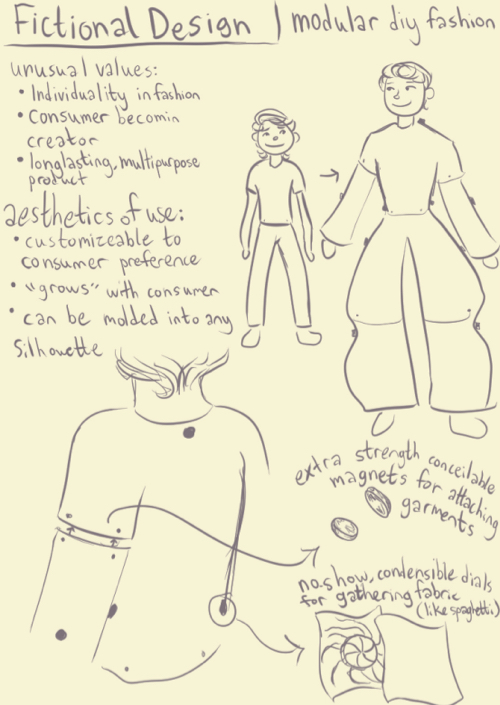 Fictional Design | modular diy fashion
unusual values:
• Individuality in fashion
• Consumer becomin
creator
• longlasting, multipurpose
product
aesthetics of use:
• customizeable to
consumer preference
• "grows" with consumer
• can be molded into any
silhouette
extra strength conceilable
magnets for attaching
garments
no show, condensible dials
for gathering fabric
(like spaghetti)